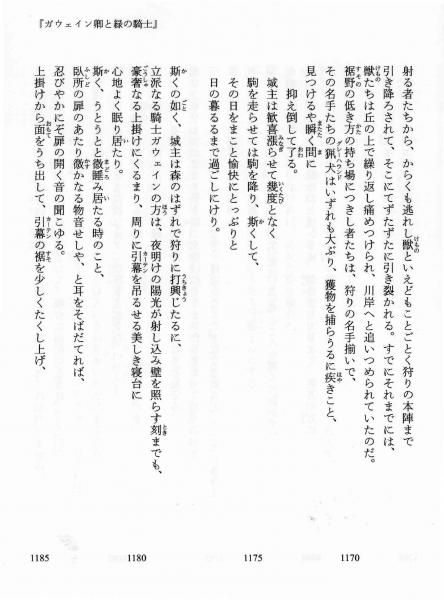 『ガウェイン卿と緑の騎士』
射る者たちから、からくも逃れし獣といえどもことごとく狩りの本陣まで
引き降ろされて、そこにてずたずたに引き裂かれる。すでにそれまでには、
獣たちは丘の上で繰り返し痛めつけられ、川岸へと追いつめられていたのだ。
裾野の低き方の持ち場につきし者たちは、狩りの名手揃いで、
その名手たちの猟犬はいずれも大ぶり、獲物を捕らうるに疾きこと、
見つけるや瞬く間に
抑え倒して了る。
城主は歓喜漲らせて幾度となく
駒を走らせては駒を降り、斯くして、
その日をまこと愉快にとっぷりと
日の暮るるまで過ごしにけり。
斯くの如く、城主は森のはずれで狩りに打興じたるに、
立派なる騎士ガウェインの方は、夜明けの陽光が射し込み壁を照らす刻までも、
豪奢なる上掛けにくるまり、周りに引幕を吊るせる美しき寝台に
心地よく眠り居たり。
斯く、うとうとと微睡み居たる時のこと、
臥所の扉のあたり微かなる物音せしや、と耳をそばだてれば、
忍びやかにぞ扉の開く音の聞こゆる。
上掛けから面をうち出して、引幕の裾を少しくたくし上げ、
1170
1175
1180
1185